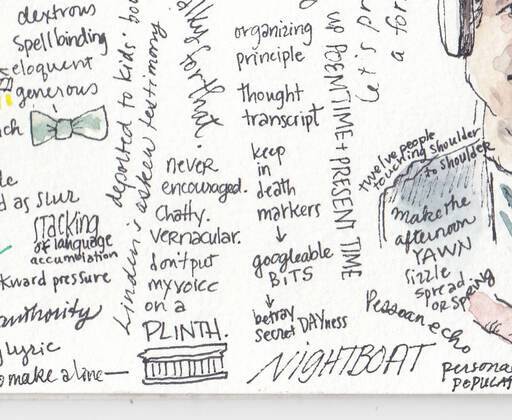 dextrous
spellbinding
eloquent
generous
d as slur
stacking
of language
accumulation
kward pressure
authority
lyric
o make a line—
deported to kids'
Linden's sixteen testimony
for that.
never
encouraged.
Chatty.
vernacular.
don't put
my voice
on a
PLINTH.
organizing
principle
thought
transcript
keep
in
death
markers
↓
googleable
BITS
↓
betray
secret DAYness
NIGHTBOAT
up POEMTIME + PRESENT TIME
let's
a for
twelve people
touching shoulder
to shoulder
make the
afternoon
YAWN
sizzle
spreading
or spring
Pessoan echo
persona
POPULA